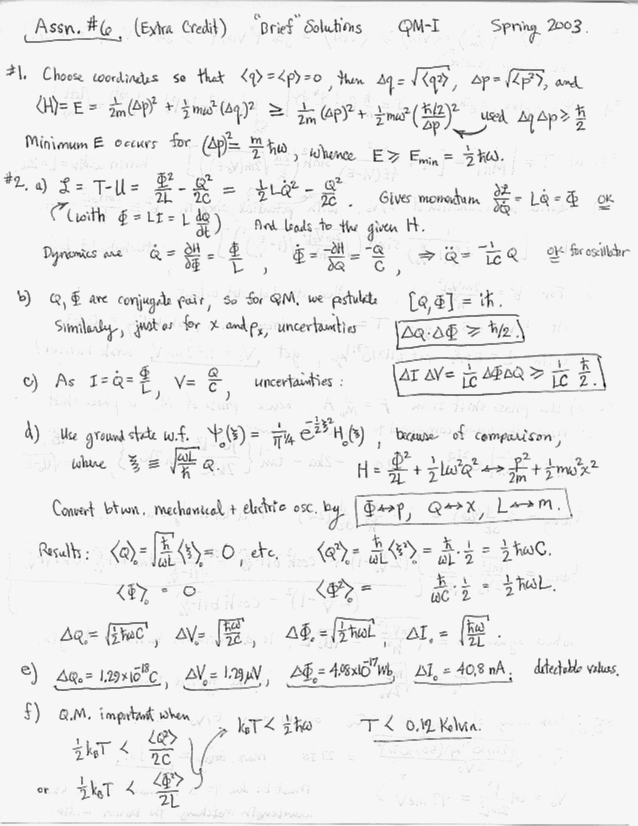 Assn. #6 (Extra Credit) "Brief" Solutions QM-I Spring 2003.
#1. Choose coordinates so that ⟨q⟩=⟨p⟩=0, then Δq = √⟨q²⟩, Δp=√⟨p²⟩, and
⟨H⟩= E = 1/2m (Δp)² + ½mω²(Δq)² ≥ 1/2m (Δp)² + ½mω²((ħ/2)/Δp)² used ΔqΔp ≥ ħ/2
Minimum E occurs for (Δp)² = m/2 ħω, whence E ≥ Emin = ½ħω.
#2. a) ℒ = T-U = Φ²/2L - Q²/2C = ½LQ̇² - Q²/2C. Gives momentum ∂ℒ/∂Q̇ = LQ̇ = Φ OK
(with Φ = LI = L dQ/dt) And leads to the given H.
Dynamics are Q̇ = ∂H/∂Φ = Φ/L, Φ̇ = -∂H/∂Q = -Q/C, ⇒ Q̈ = -1/LC Q OK for oscillator
b) Q, Φ are conjugate pair, so for QM. we postulate [Q,Φ] = iħ.
Similarly, just as for x and pₓ, uncertainties ΔQ·ΔΦ ≥ ħ/2.
c) As I = Q̇ = Φ/L, V = Q/C, uncertainties: ΔI ΔV = 1/LC ΔΦΔQ ≥ 1/LC ħ/2.
d) Use ground state w.f. Ψ₀(ξ) = 1/π^¼ e^(-½ξ²) H₀(ξ), because of comparison,
where ξ ≡ √(ωL/ħ) Q. H = Φ²/2L + ½Lω²Q² ↔ p²/2m + ½mω²x²
Convert btwn. mechanical + electric osc. by Φ↔p, Q↔x, L↔m.
Results: ⟨Q⟩₀ = √(ħ/ωL) ⟨ξ⟩₀ = 0, etc. ⟨Q²⟩₀ = ħ/ωL ⟨ξ²⟩₀ = ħ/ωL · ½ = ½ħωC.
⟨Φ⟩₀ = 0 ⟨Φ²⟩₀ = ħ/ωC · ½ = ½ħωL.
ΔQ₀ = √(½ħωC), ΔV₀ = √(ħω/2C), ΔΦ₀ = √(½ħωL), ΔI₀ = √(ħω/2L).
e) ΔQ₀ = 1.29×10⁻¹⁸C, ΔV₀ = 1.29μV, ΔΦ₀ = 4.08×10⁻¹⁷Wb, ΔI₀ = 40.8 nA; detectable values.
f) Q.M. important when
½kBT < ⟨Q²⟩/2C kBT < ½ħω T < 0.12 Kelvin.
or ½kBT < ⟨Φ²⟩/2L